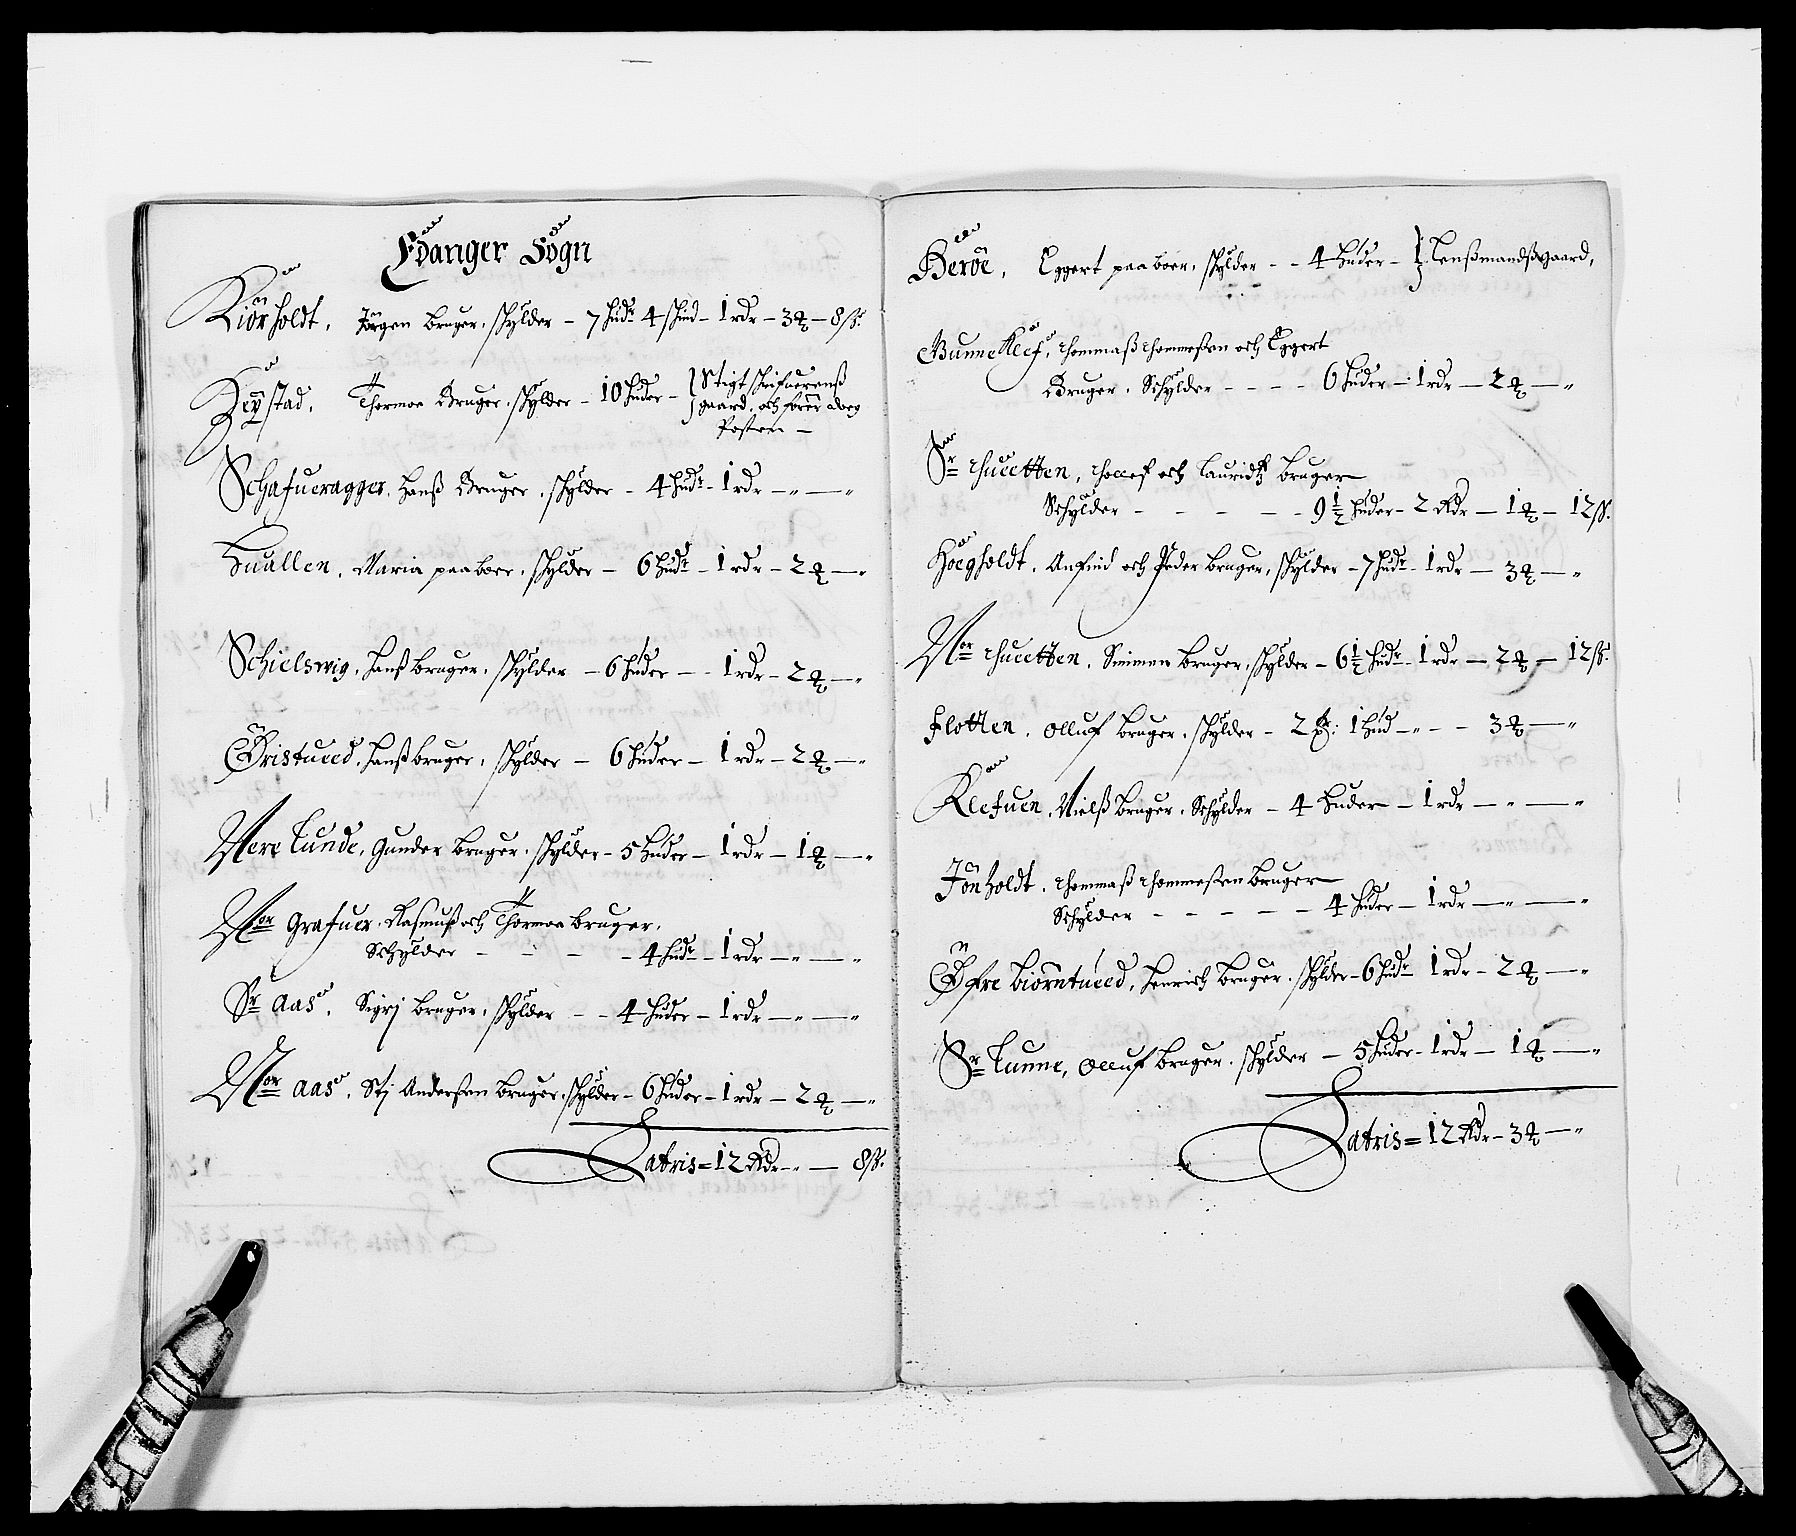 Edanger Sogn
Kiörholdt, Jörgen bruger, schylder - 7 hudr 4 schind - 1 rdr - 3 ₰ - 8 ß.
Heÿstad, Thormoe Bruger, schylder - 10 huder - } Stigt schrifuerenß
gaard, och förer aveg
Posten -
Schafueragger, Hanß Bruger, schylder - 4 hudr - 1 rdr - " - "
Huallen, Maria paaboer, schylder - 6 hudr - 1 rdr - 2 ₰ - "
Schielswig, Hanß bruger, schylder - 6 huder - 1 rdr - 2 ₰ - "
Öristueed, Hanß bruger, schylder - 6 huder - 1 rdr - 2 ₰ - "
Nere Lunde, Gunder bruger, schylder - 5 huder - 1 rdr - 1 ₰ - "
Nor Grafuer, Rasmuß och Thormoe bruger,
Schylder - - - - 4 hudr - 1 rdr - " - "
Sr Aas, Sigrj bruger, schylder - - 4 huder - 1 rdr - " - "
Nor Aas, Stj Anderßen bruger, schylder - 6 huder - 1 rdr - 2 ₰ - "
Latris = 12 Rdr - " - 8 ß.
Beröe, Eggert paaboer, schylder - - 4 huder - } Lenßmandßgaard,
Bunneklef, Thommaß Thommeßen och Eggert
Bruger, Schylder - - - - 6 huder - 1 rdr - 2 ₰ - "
Sr Thueetten, Thollef och Lauridtz bruger
Schylder - - - - - 9½ huder - 2 Rdr - 1 ₰ - 12 ß.
Högholdt, Anfind och Peder bruger, schylder - 7 hudr - 1 rdr - 3 ₰ - "
Nor Thueetten, Simmen bruger, schylder - 6½ hudr - 1 rdr - 2 ₰ - 12 ß.
Flotten, Olluf bruger, schylder - 2 : 1 hud - " - - 3 ₰ - "
Klefuen, Nielß bruger, Schylder - 4 huder - 1 rdr - " - "
Jönholdt, Thommaß Thommeßen bruger
Schylder - - - - - 4 huder - 1 rdr - " - "
Öfre Biörntueed, Henrich bruger, schylder - 6 hudr 1 rdr - 2 ₰ - "
Sr Lunne, Olluf bruger, schylder - 5 huder - 1 rdr - 1 ₰ - "
Latris = 12 Rdr - 3 ₰ - "